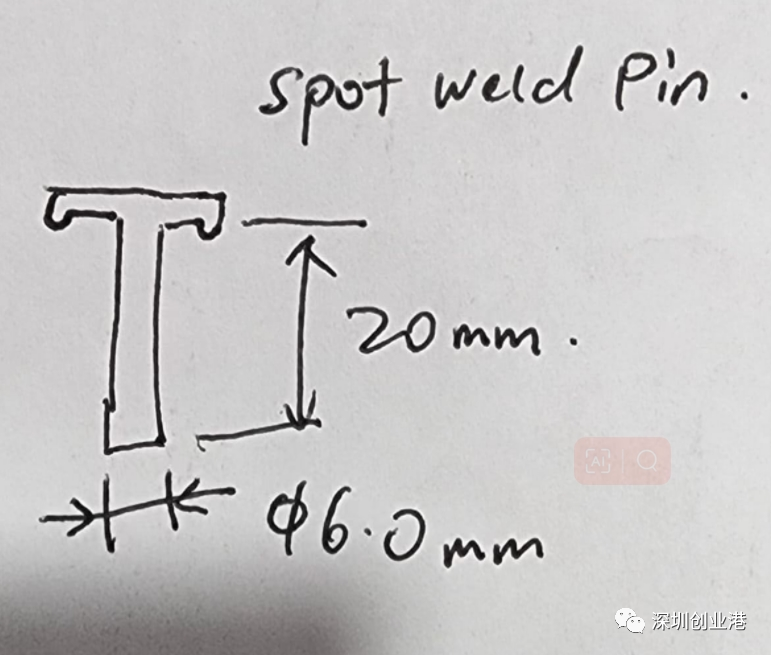 spot weld Pin.
20mm.
φ6.0mm
AI
深圳创业港